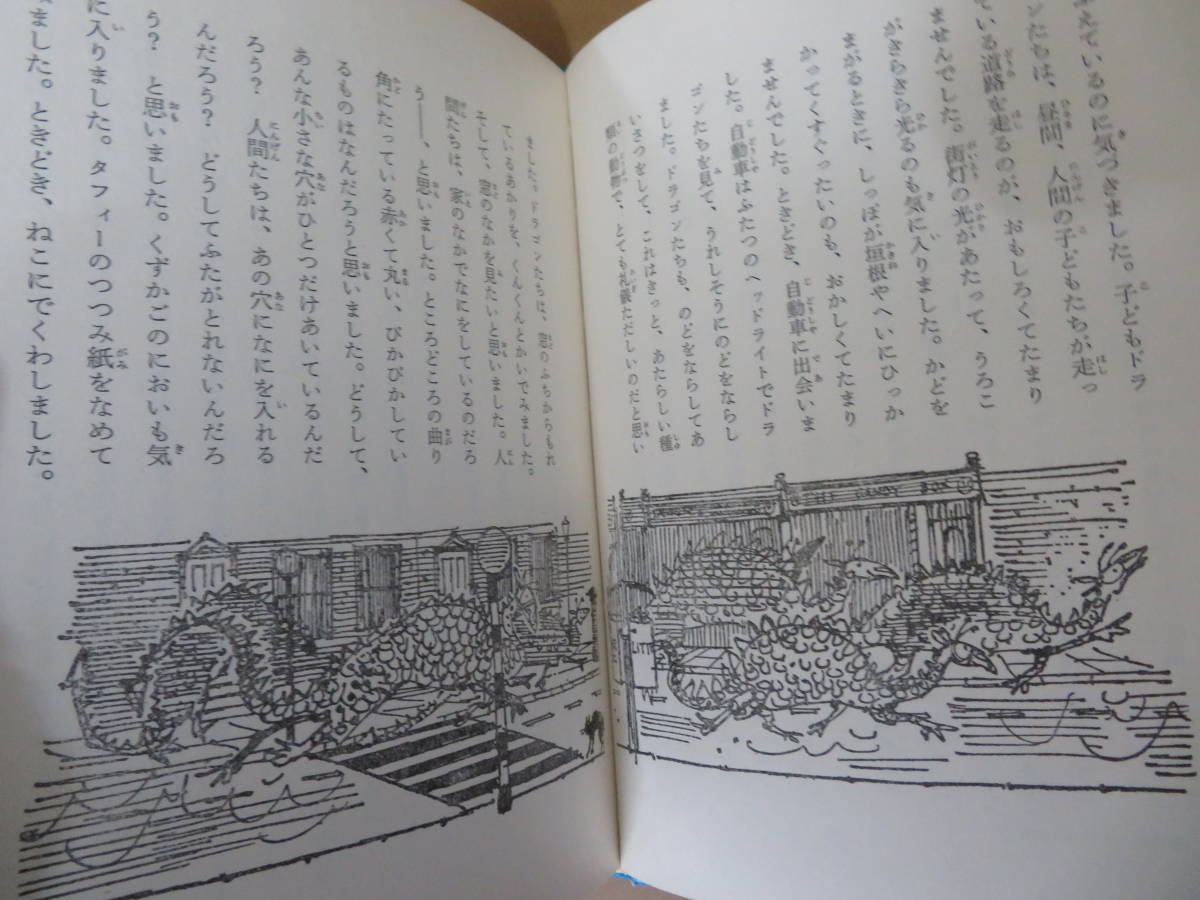 えているのに気づきました。子どもドラ
ンたちは、昼間、人間の子どもたちが走っ
ている道路を走るのが、おもしろくてたまり
ませんでした。街灯の光があたって、うろこ
がきらきら光るのも気に入りました。かどを
まがるときに、しっぽが垣根やへいにひっか
かってくすぐったいのも、おかしくてたまり
ませんでした。ときどき、自動車に出会いま
した。自動車はふたつのヘッドライトでドラ
ゴンたちを見て、うれしそうにのどをならし
ました。ドラゴンたちも、のどをならしてあ
いさつをして、これはきっと、あたらしい種
類の動物で、とても礼儀ただしいのだと思い
ました。ドラゴンたちは、窓のふちからもれ
ているあかりを、くんくんとかいでみました。
そして、窓のなかを見たいと思いました。人
間たちは、家のなかでなにをしているのだろ
う――、と思いました。ところどころの曲り
角にたっている赤くて丸い、ぴかぴかしてい
るものはなんだろうと思いました。どうして、
あんな小さな穴がひとつだけあいているんだ
ろう？　人間たちは、あの穴になにを入れる
んだろう？　どうしてふたがとれないんだろ
う？　と思いました。くずかごのにおいも気
に入りました。タフィーのつつみ紙をなめて
ました。ときどき、ねこにでくわしました。
CANDY BOX
LITT